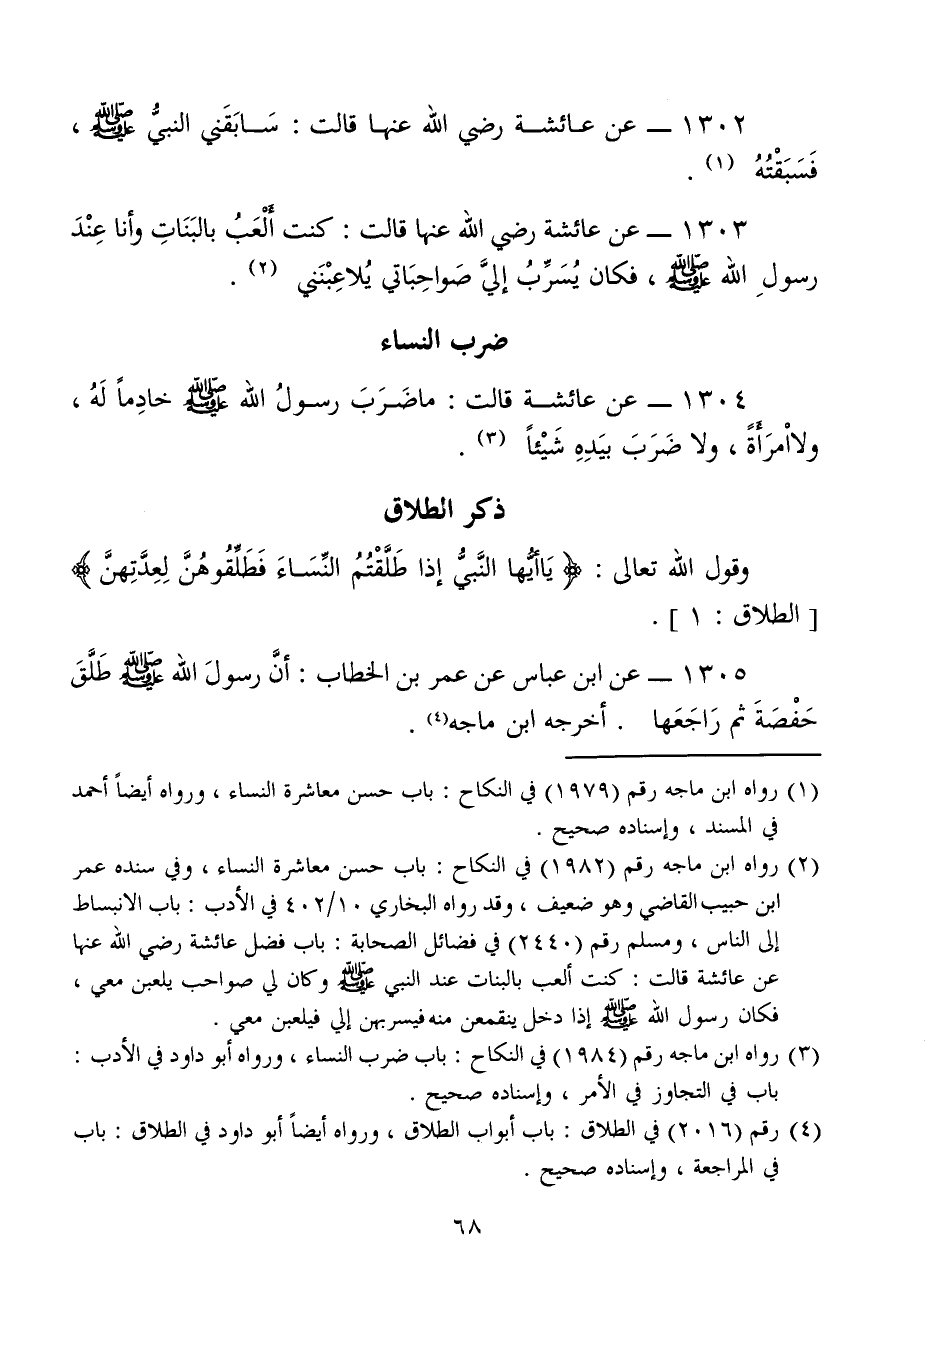 ١٣٠٢ ــ عن عـائشـــة رضي الله عنهـا قالت : سَــابَقَني النبيُّ ﷺ ،
فَسَبَقْتُهُ (١) .
١٣٠٣ ــ عن عائشة رضي الله عنها قالت : كنت أَلْعَبُ بالبَنَاتِ وأنا عِنْدَ
رسولِ الله ﷺ ، فكان يُسَرِّبُ إليَّ صَواحِبَاتي يُلاعِبْنَني (٢) .
ضرب النساء
١٣٠٤ ــ عن عائشـــة قالت : ماضَـرَبَ رسـولُ الله ﷺ خادِماً لَهُ ،
ولاأمرَأَةً ، ولا ضَرَبَ بيَدِهِ شَيْئاً (٣) .
ذكر الطلاق
وقول الله تعالى : ﴿ يَاأيُّها النَّبيُّ إذا طَلَّقْتُمُ النِّسَـاءَ فَطَلِّقُوهُنَّ لِعِدَّتِهنَّ ﴾
[ الطلاق : ١ ] .
١٣٠٥ ــ عن ابن عباس عن عمر بن الخطاب : أنَّ رسولَ الله ﷺ طَلَّقَ
حَفْصَةَ ثم رَاجَعَها . أخرجه ابن ماجه(٤) .
(١) رواه ابن ماجه رقم (١٩٧٩) في النكاح : باب حسن معاشرة النساء ، ورواه أيضاً أحمد
في المسند ، وإسناده صحيح .
(٢) رواه ابن ماجه رقم (١٩٨٢) في النكاح : باب حسن معاشرة النساء ، وفي سنده عمر
ابن حبيب القاضي وهو ضعيف ، وقد رواه البخاري ٤٠٢/١٠ في الأدب : باب الانبساط
إلى الناس ، ومسلم رقم (٢٤٤٠) في فضائل الصحابة : باب فضل عائشة رضي الله عنها
عن عائشة قالت : كنت ألعب بالبنات عند النبي ﷺ وكان لي صواحب يلعبن معي ،
فكان رسول الله ﷺ إذا دخل ينقمعن منه فيسربهن إلي فيلعبن معي .
(٣) رواه ابن ماجه رقم (١٩٨٤) في النكاح : باب ضرب النساء ، ورواه أبو داود في الأدب :
باب في التجاوز في الأمر ، وإسناده صحيح .
(٤) رقم (٢٠١٦) في الطلاق : باب أبواب الطلاق ، ورواه أيضاً أبو داود في الطلاق : باب
في المراجعة ، وإسناده صحيح .
٦٨